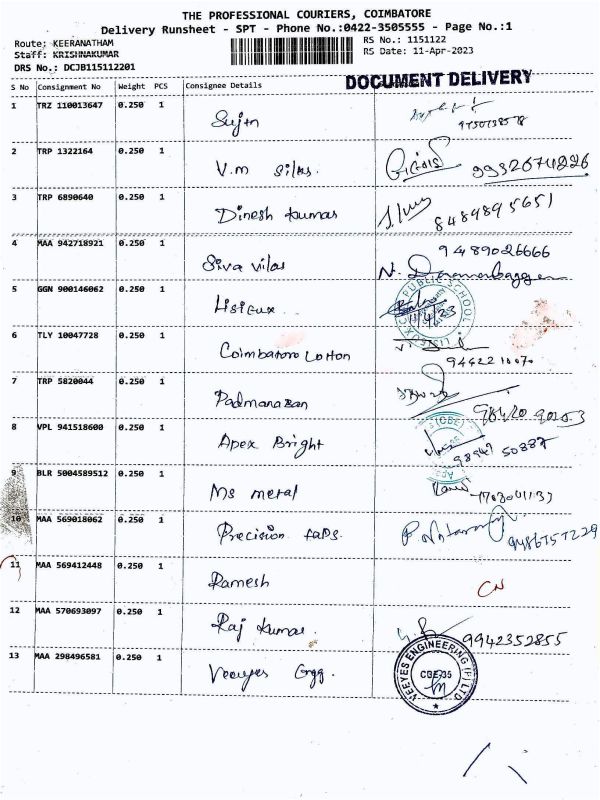 THE PROFESSIONAL COURIERS, COIMBATORE
Delivery Runsheet - SPT - Phone No.:0422-3505555 - Page No.:1
Route: KEERANATHAM RS No.: 1151122
Staff: KRISHNAKUMAR RS Date: 11-Apr-2023
DRS No.: DCJB115112201
DOCUMENT DELIVERY
S No Consignment No Weight PCS Consignee Details
1 TRZ 110013647 0.250 1
2 TRP 1322164 0.250 1 V.m Silks.
3 TRP 6890640 0.250 1 Dinesh kumar 8489895651
4 MAA 942718921 0.250 1 Siva vilas 9489026666
5 GGN 900146062 0.250 1 Lisieux
PUBLIC SCHOOL
11/4/23
6 TLY 10047728 0.250 1 Coimbatore
7 TRP 5820044 0.250 1
8 VPL 941518600 0.250 1 Apex Bright
(CBE)
9 BLR 5004589512 0.250 1 Ms metal
10 MAA 569018062 0.250 1 Precision
11 MAA 569412448 0.250 1 Ramesh CN
12 MAA 570693097 0.250 1 Raj kumar 9942352855
13 MAA 298496581 0.250 1 Veeyes Engg.
VEEYES ENGINEERING (P) LTD
CBE-35